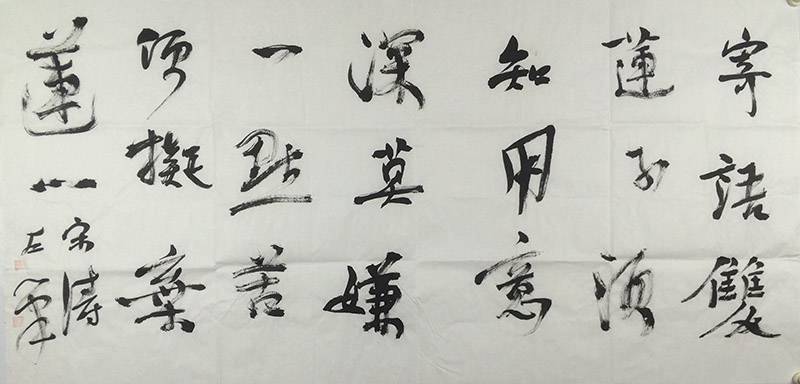 寄語雙
蓮子須
知用意
深莫嫌
一點苦
便擬棄
蓮心
宋濤
左筆